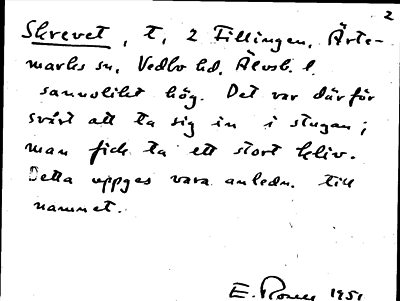 2
Skrevet, t, 2 Fillingen, Ärte-
marks sn, Vedbo hd, Älvsb. l.
sannolikt hög. Det var därför
svårt att ta sig in i stugan;
man fick ta ett stort kliv.
Detta uppges vara anledn. till
namnet.
E. 1951